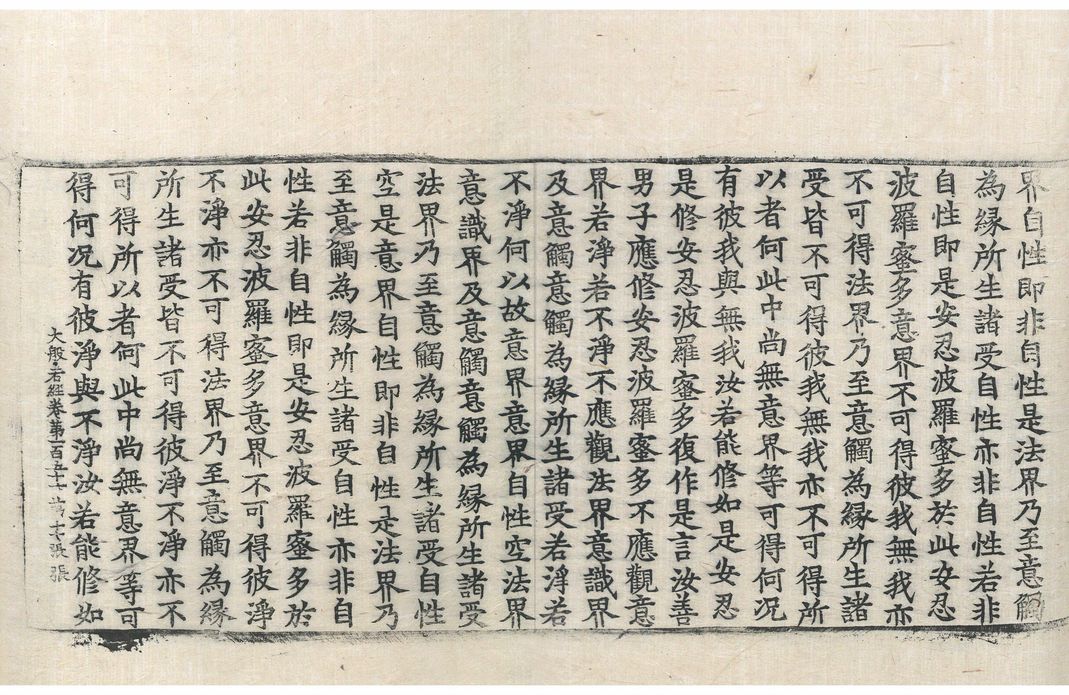 界自性即非自性是法界乃至意觸
為緣所生諸受自性亦非自性若非
自性即是安忍波羅蜜多於此安忍
波羅蜜多意界不可得彼我無我亦
不可得法界乃至意觸為緣所生諸
受皆不可得彼我無我亦不可得所
以者何此中尚無意界等可得何況
有彼我與無我汝若能修如是安忍
是修安忍波羅蜜多復作是言汝善
男子應修安忍波羅蜜多不應觀意
界若淨若不淨不應觀法界意識界
及意觸意觸為緣所生諸受若淨若
不淨何以故意界意界自性空法界
意識界及意觸意觸為緣所生諸受
法界乃至意觸為緣所生諸受自性
空是意界自性即非自性是法界乃
至意觸為緣所生諸受自性亦非自
性若非自性即是安忍波羅蜜多於
此安忍波羅蜜多意界不可得彼淨
不淨亦不可得法界乃至意觸為緣
所生諸受皆不可得彼淨不淨亦不
可得所以者何此中尚無意界等可
得何況有彼淨與不淨汝若能修如
大般若經卷第一百五十 張